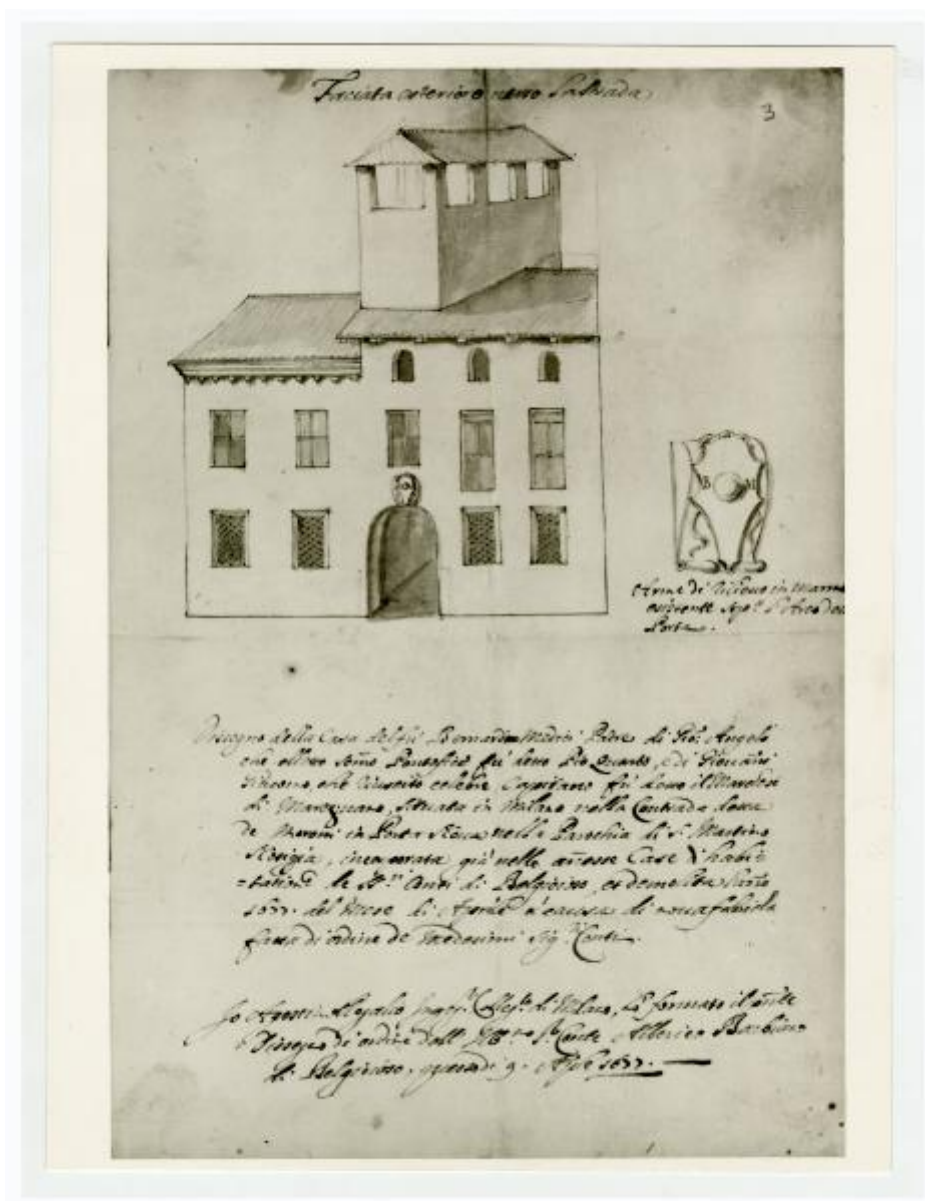 Faciata esteriore verso la strada
3
B M
Arma di rilievo in marmo
esistente sopra l'Arco della
Porta.
Disegno della Casa del fù Bernardin Medici Padre di Gio. Angelo
che assonto sommo Pontefice fù detto Pio Quarto, e di Giovanni
che riuscito celebre Capitano fù detto il Marchese
di Maregnano, situata in Milano nella Contrada detta
de Meroni in Porta Noua nella Parochia di S. Martino
Nosigia, incorporata già nelle annesse Case d'habi-
=tatione de Conti di Belgioioso, et demolita l'anno
1677. del mese di Aprile à causa di noua fabrica
fatta di ordine de medesimi Sig.ri Conti.
Io Ingeg.re Colleg.to di Milano, hò formato il
Disegno di ordine dell' Ill.mo S.r Conte Alberico Barbiano
di Belgioioso. questo dì 9. Aprile 1677.